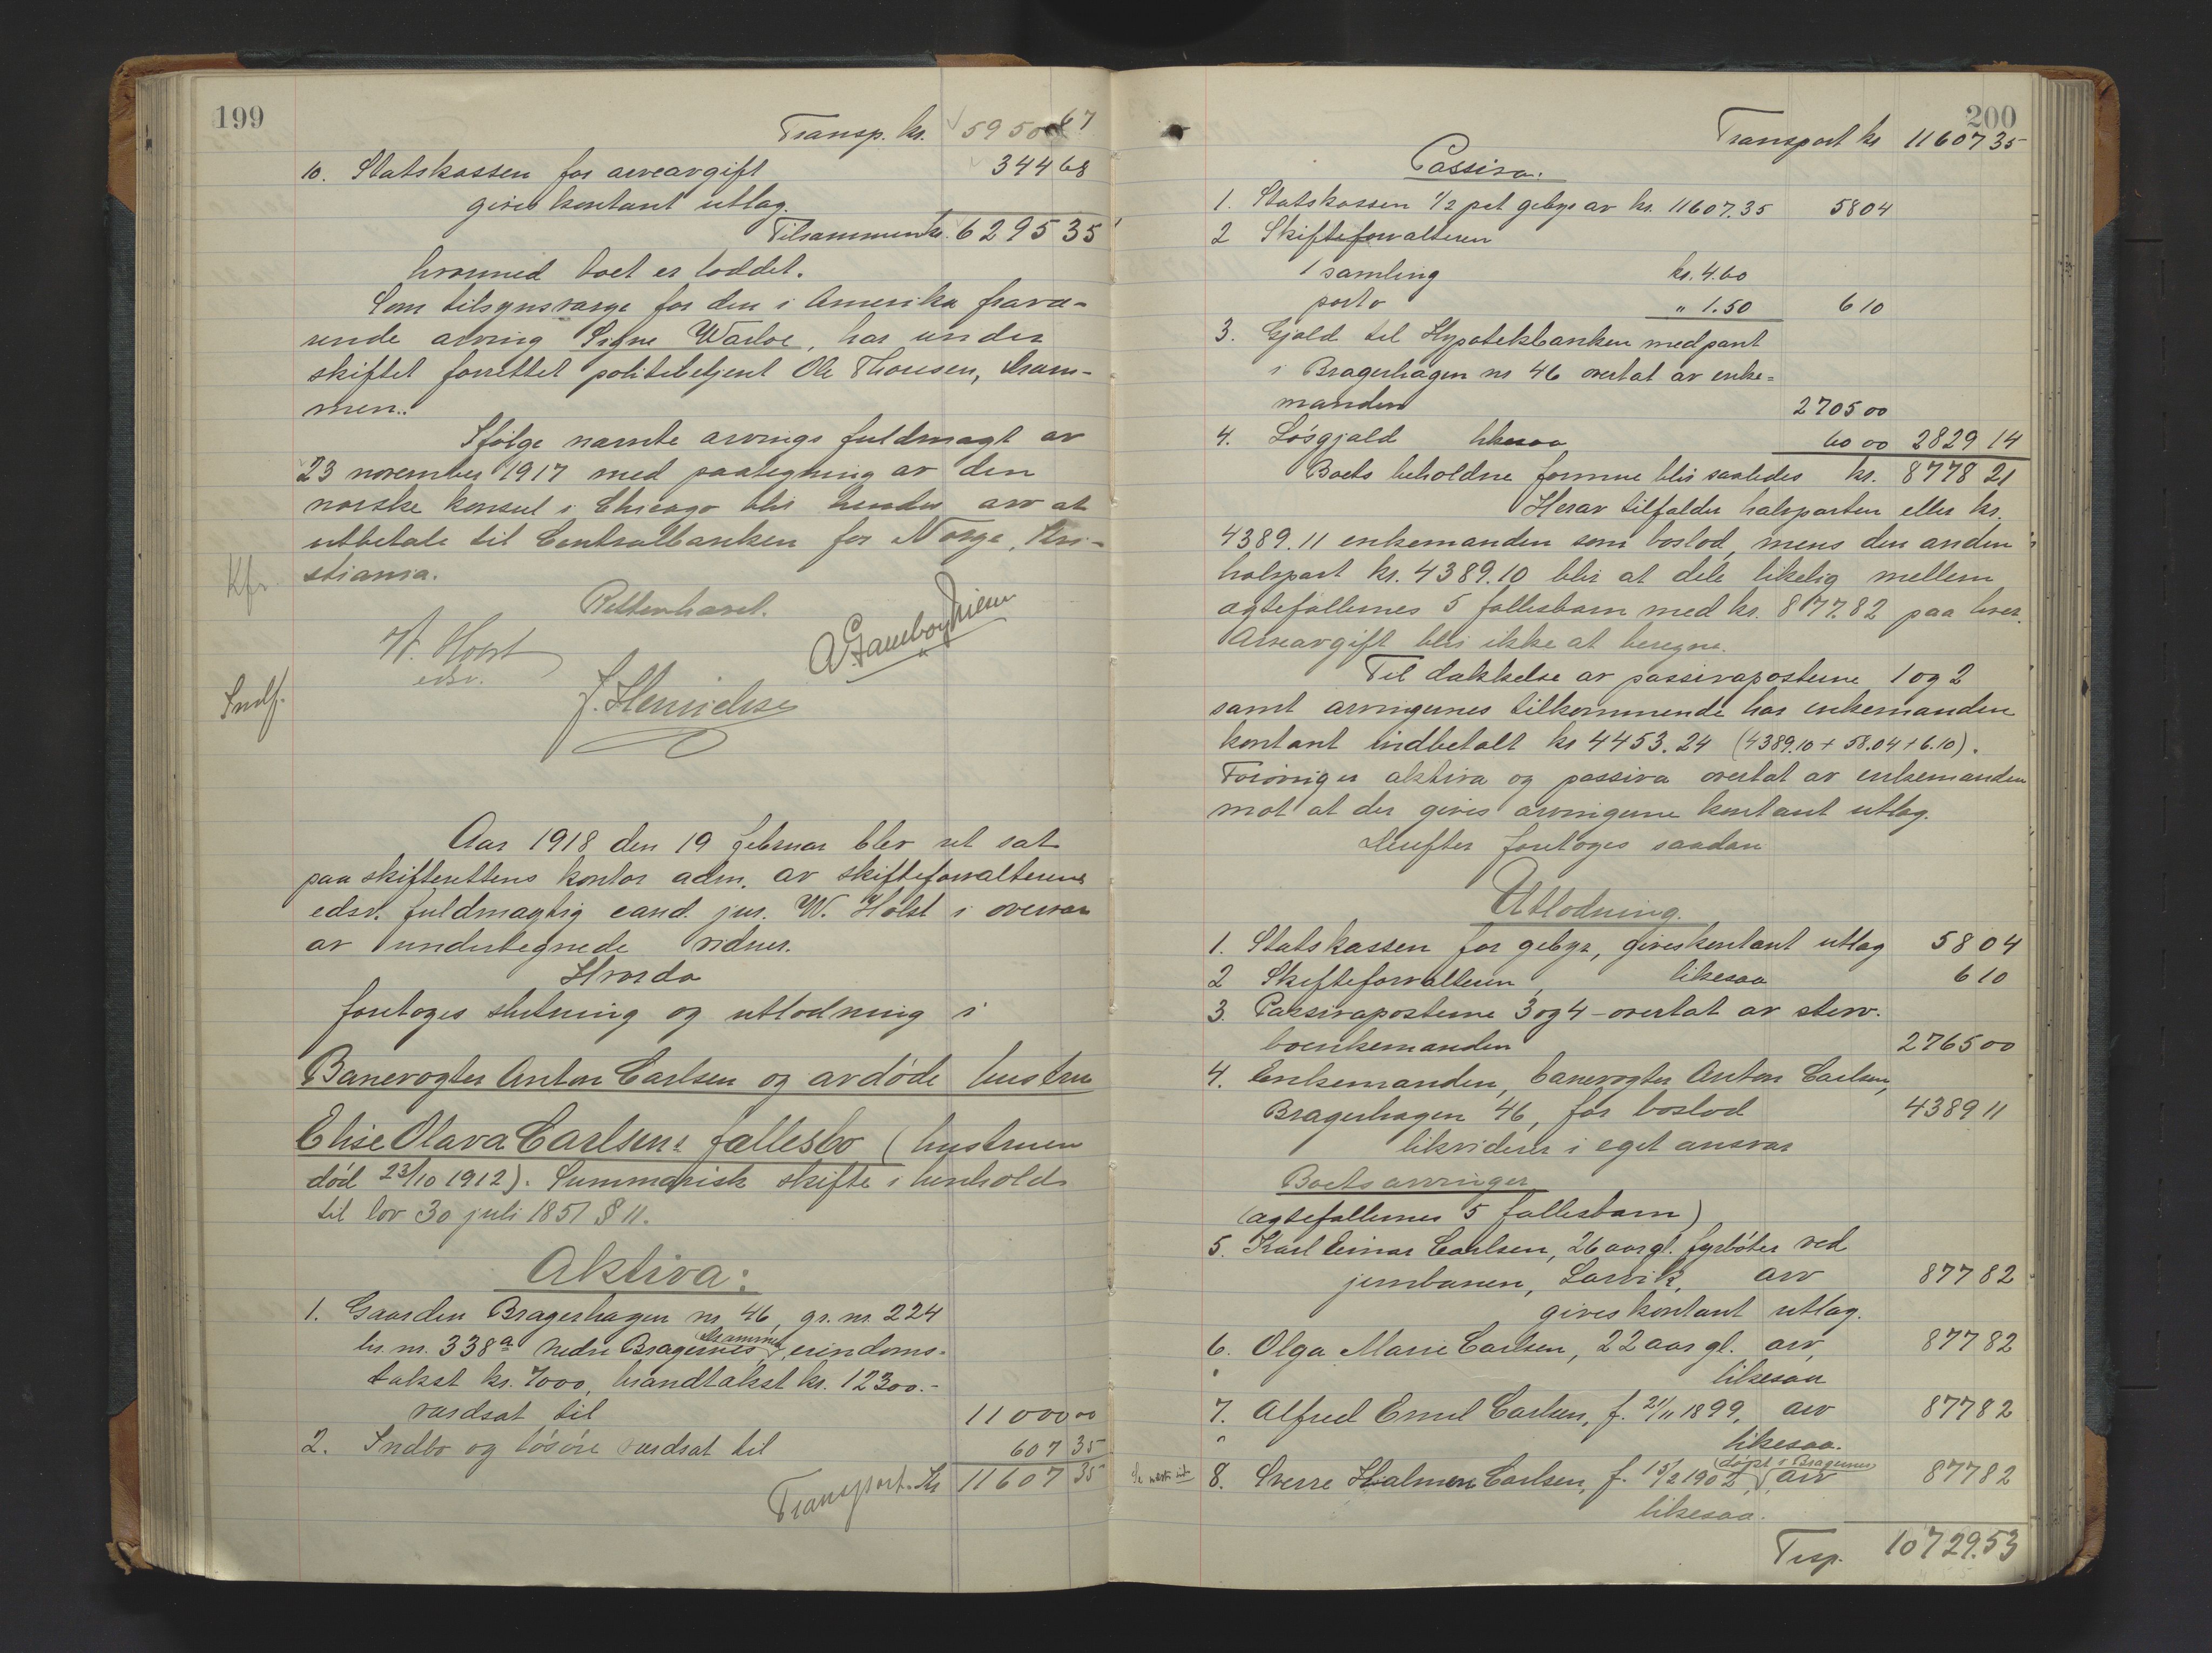 199
Transp. kr. 5950 67
10. Statskassen for arveavgift 344 68
gives kontant utlæg.
Tilsammen kr. 6295 35
hvormed boet er loddet.
Som tilsynsværge for den i Amerika fravæ-
rende arving Signe Warloe, har under
skiftet forrettet politibetjent Ole Thoresen, Dram-
men.
Ifølge nævnte arvings fuldmagt av
23 november 1917 med paategning av den
norske konsul i Chicago blir hendes arv at
utbetale til Centralbanken for Norge, Kri-
Kfr. stiania.
Retten hævet.
W. Holst
edsv.
J. Henrichsen
Indf.
Aar 1918 den 19 februar blev ret sat
paa skifterettens kontor adm. av skifteforvalterens
edsv. fuldmægtig cand. jur. W. Holst i overvær
av undertegnede vidner.
Hvorda
foretoges slutning og utlodning i
Banevogter Anton Carlsen og avdøde hustru
Elise Olava Carlsens fællesbo (hustruen
død 23/10 1912). Summarisk skifte i henhold
til lov 30 juli 1851 § 11.
Aktiva:
1. Gaarden Bragerhagen nr. 46, gr. nr. 224
br. nr. 338a Nedre Bragernes, Drammen, eiendoms-
takst kr. 7000, brandtakst kr. 12300.-
værdsat til 11000 00
2. Indbo og løsøre værdsat til 607 35
Transport. Kr 11607 35
200
Transport kr 11607 35
Passiva.
1. Statskassen 1/2 pct gebyr av kr. 11607.35 58 04
2 Skifteforvalteren
1 samling kr. 4.60
porto " 1.50 6 10
3. Gjæld til Hypotekbanken med pant
i Bragerhagen nr 46 overtat av enke-
manden 2705 00
4. Løsgjæld likesaa 60 00 2829 14
Boets beholdne formue blir saaledes kr. 8778 21
Herav tilfalder halvparten eller kr.
4389.11 enkemanden som boslod, mens den anden
halvpart kr. 4389.10 blir at dele likelig mellem
ægtefællernes 5 fællesbarn med kr. 877.82 paa hver.
Arveavgift blir ikke at beregne.
Til dækkelse av passivaposterne 1 og 2
samt arvingernes tilkommende har enkemanden
kontant indbetalt kr 4453.24 (4389.10 + 58.04 + 6.10).
Forøvrig er aktiva og passiva overtat av enkemanden
mot at der gives arvingerne kontant utlæg.
Derefter foretoges saadan
Utlodning.
1. Statskassen for gebyr, gives kontant utlæg 58 04
2 Skifteforvalteren, likesaa 6 10
3. Passivaposterne 3 og 4 - overtat av sterv-
boenkemanden 2765 00
4. Enkemanden, banevogter Anton Carlsen,
Bragerhagen 46, for boslod 4389 11
likviderer i eget ansvar
Boets arvinger
(ægtefællernes 5 fællesbarn)
5. Karl Einar Carlsen, 26 aar gl. fyrbøter ved
jernbanen, Larvik, arv 877 82
gives kontant utlæg.
6. Olga Marie Carlsen, 22 aar gl. arv, 877 82
likesaa
7. Alfred Emil Carlsen, f. 21/11 1899, arv 877 82
likesaa.
Se næste side 8. Sverre Halmon Carlsen, f. 15/2 1902, (døpt i Bragernes) arv 877 82
likesaa.
Trsp. 10729.53